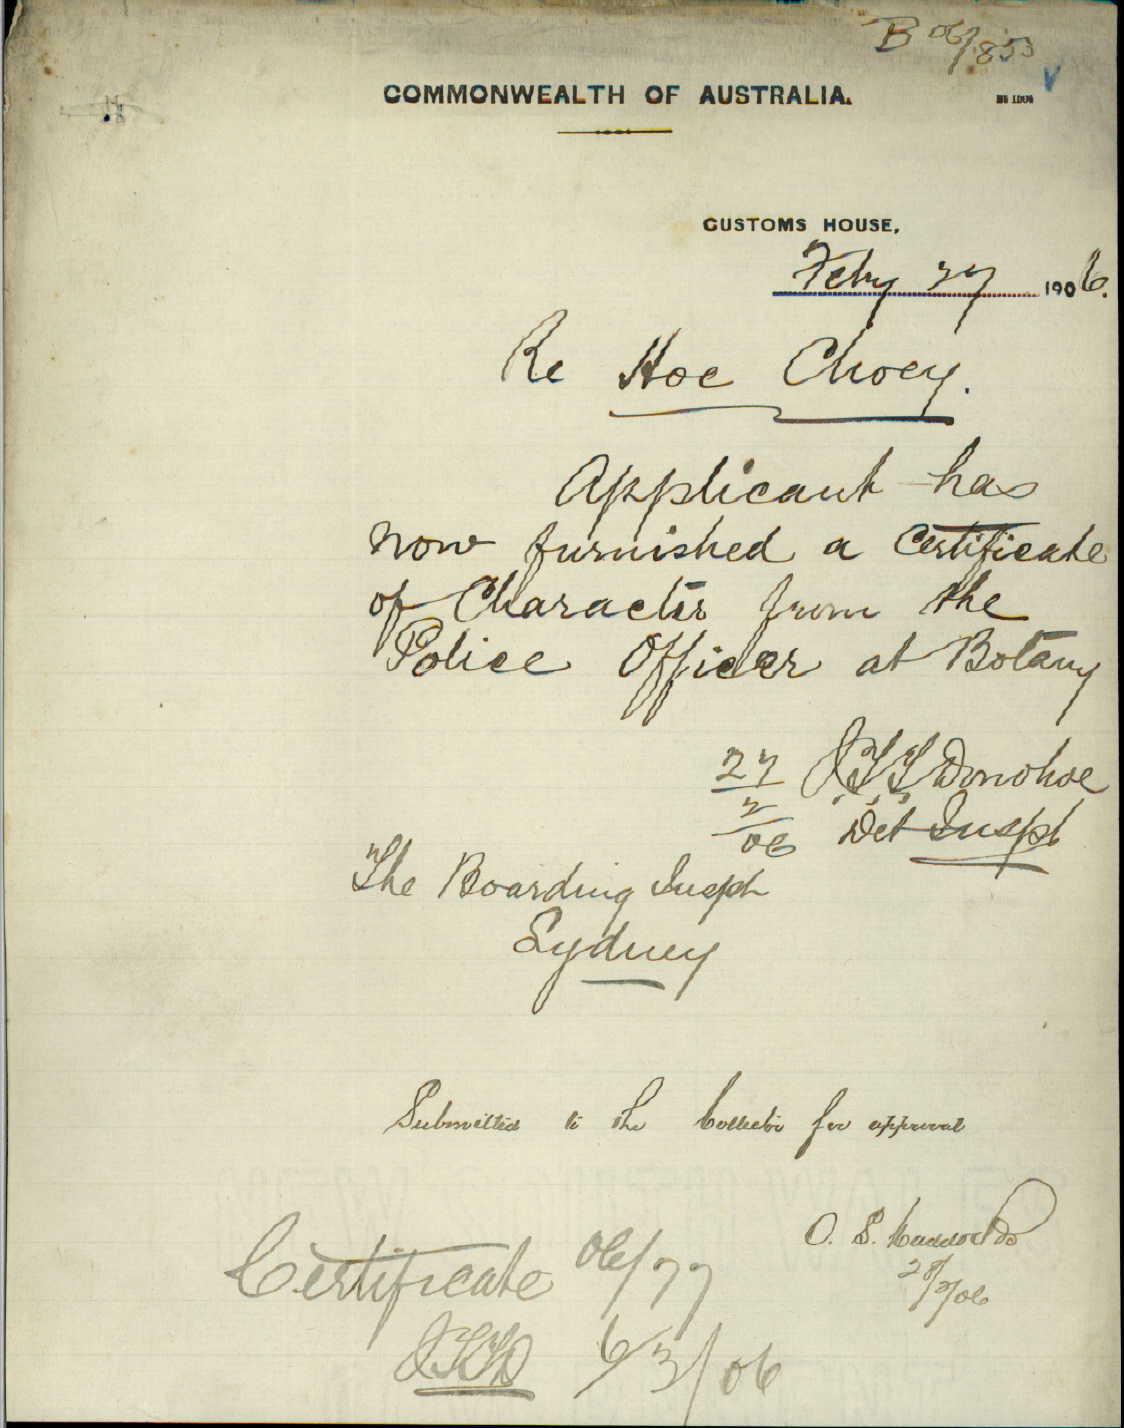 B 06/853
COMMONWEALTH OF AUSTRALIA.
CUSTOMS HOUSE,
Feby 27 1906.
Re Hoe Choey.
Applicant has
now furnished a Certificate
of Character from the
Police Officer at Botany
27/2/06 J.T.T. Donohoe
Det Inspt
The Boarding Inspr
Sydney
Submitted to the Collector for approval
O. S.
28/2/06
Certificate 06/77
JTTD 6/3/06